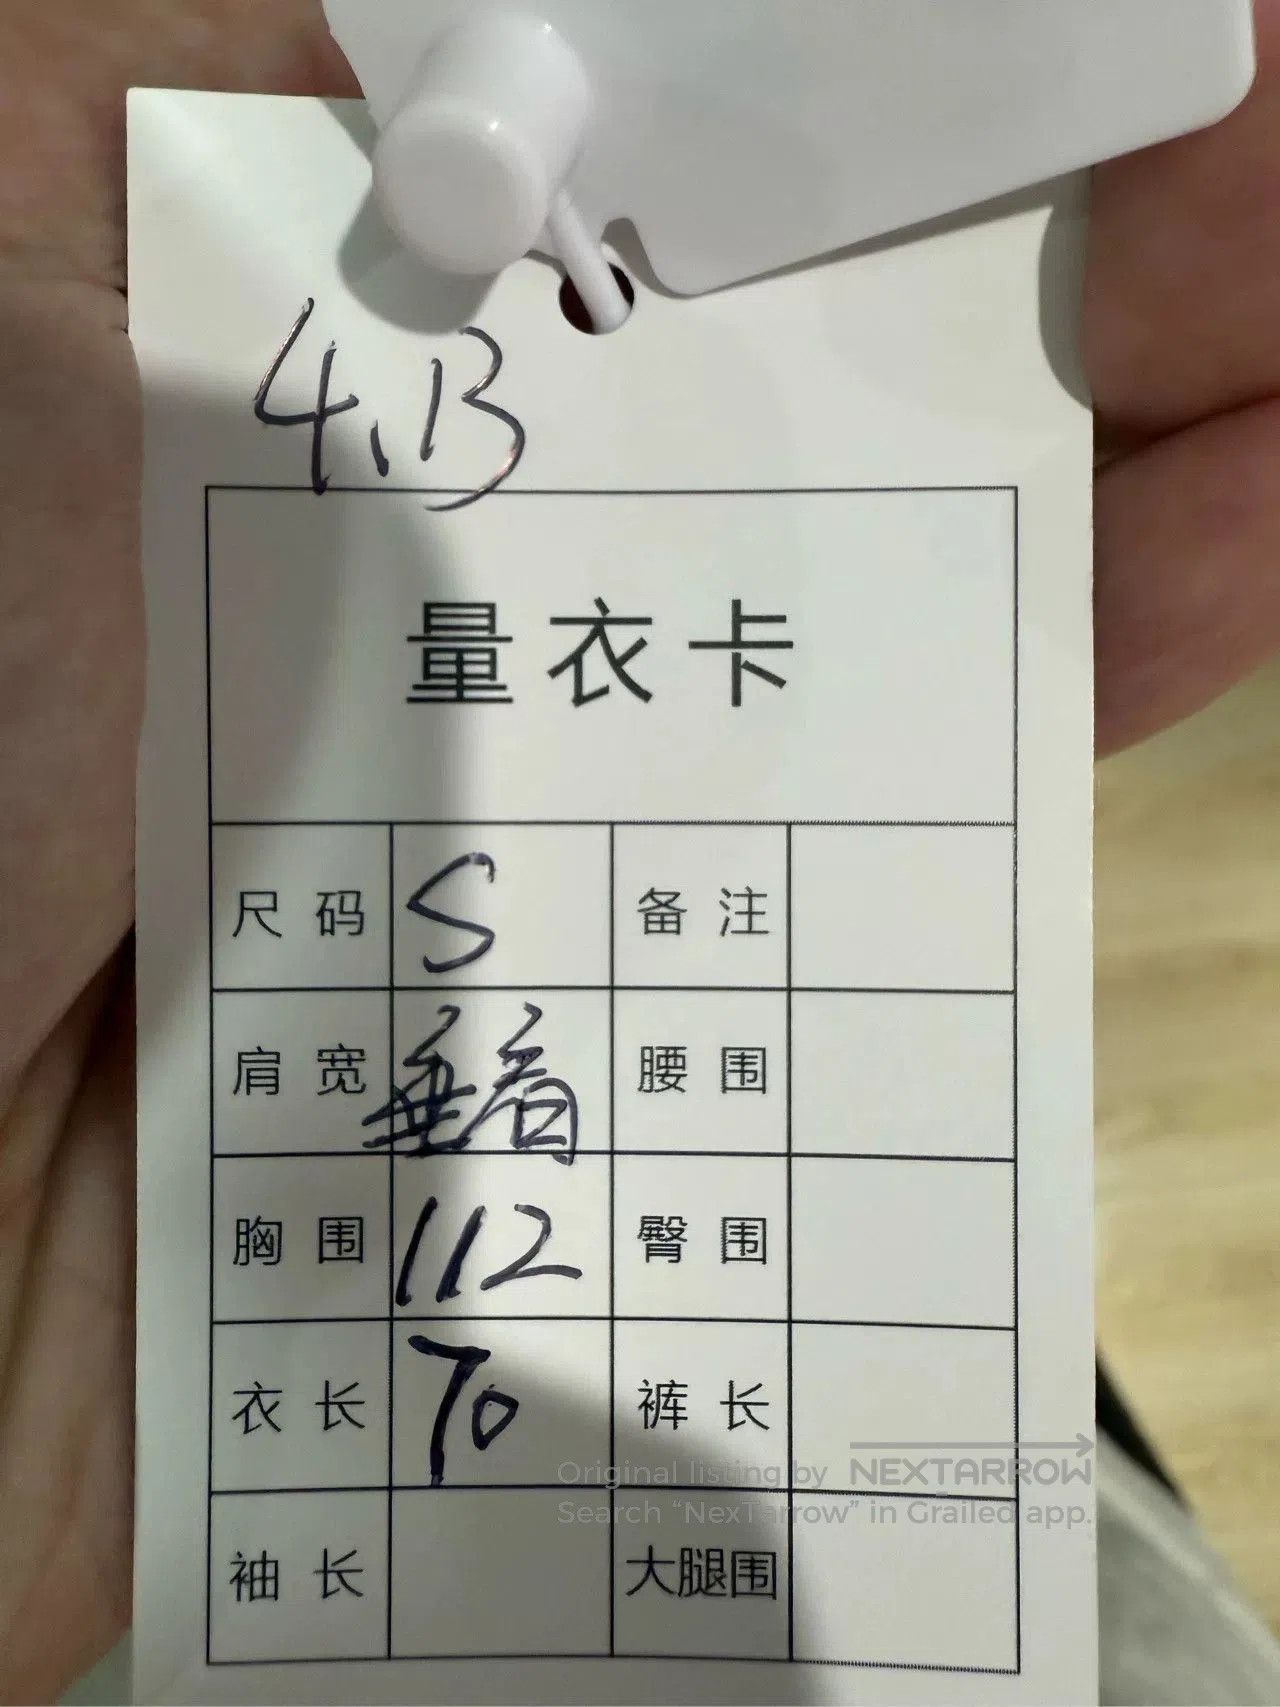 4.13
量衣卡
尺码 S 备注
肩宽 垂肩 腰围
胸围 112 臀围
衣长 70 裤长
Original listing by NEXTARROW
Search “NexTarrow” in Grailed app.
袖长 大腿围